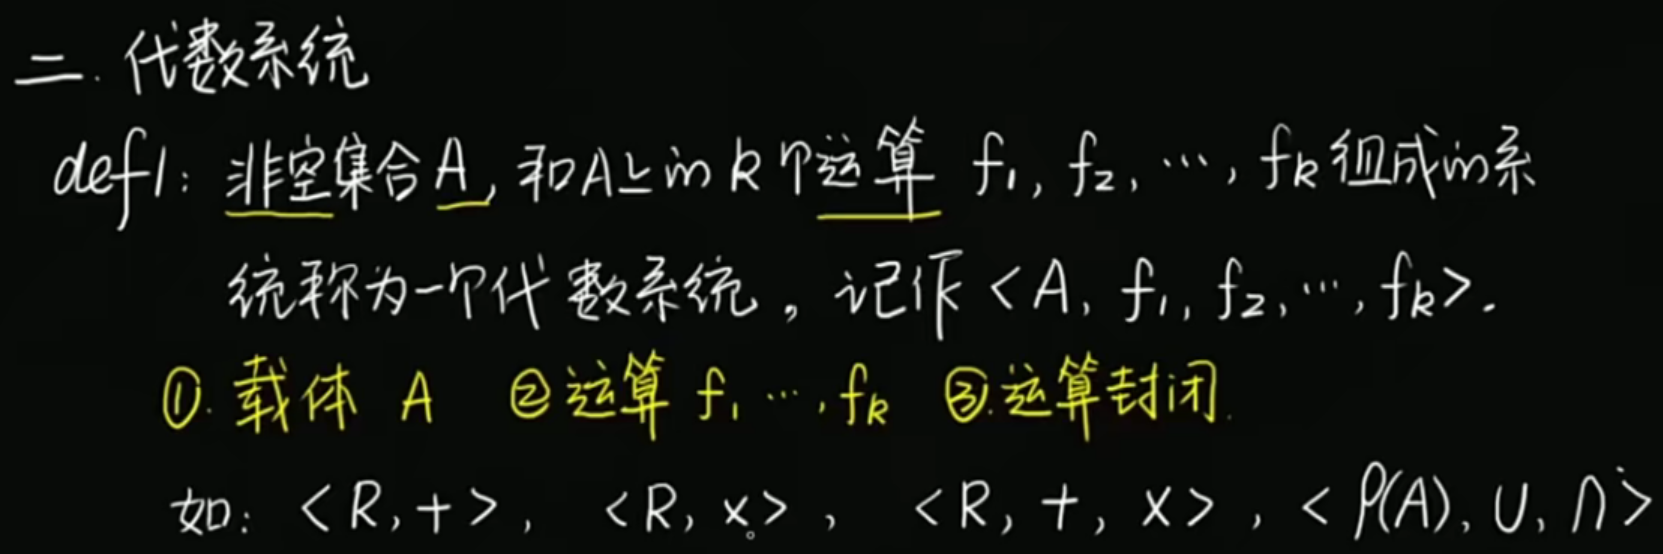 二. 代数系统
def1: 非空集合A, 和A上的k个运算 f₁, f₂, …, fₖ组成的系
统称为一个代数系统。记作<A, f₁, f₂, …, fₖ>.
①. 载体 A ②运算 f₁ …, fₖ ③.运算封闭.
如: <R, +>, <R, ×>, <R, +, ×>, <ρ(A), ∪, ∩>